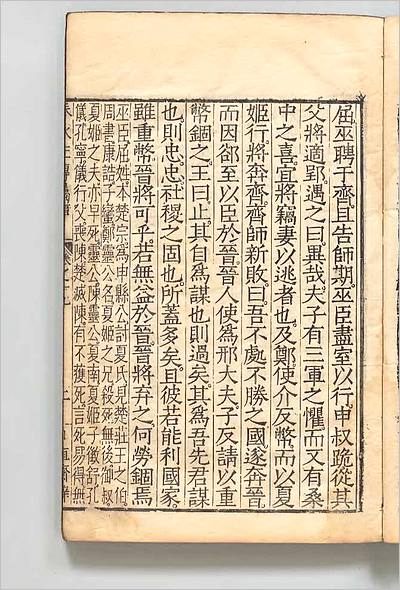 屈巫聘于齊且告師期巫臣盡室以行申叔跪從其
父將適郢遇之曰異哉夫子有三軍之懼而又有桑
中之喜宜將竊妻以逃者也及鄭使介反幣而以夏
姬行將奔齊齊師新敗曰吾不處不勝之國遂奔晉
而因郤至以臣於晉晉人使爲邢大夫子反請以重
幣錮之王曰止其自爲謀也則過矣其爲吾先君謀
也則忠忠社稷之固也所蓋多矣且彼若能利國家
雖重幣晉將可乎若無益於晉晉將弃之何勞錮焉
巫臣屈姓本楚宗爲申縣公討夏氏見楚莊王之伯
周書康誥子蠻鄭靈公名夏姬之兄殺死無後御叔
夏姬之夫亦早死靈公陳靈公夏南夏姬子徵舒孔
儀孔寧儀行父喪陳楚滅陳有不獲死言死易得無